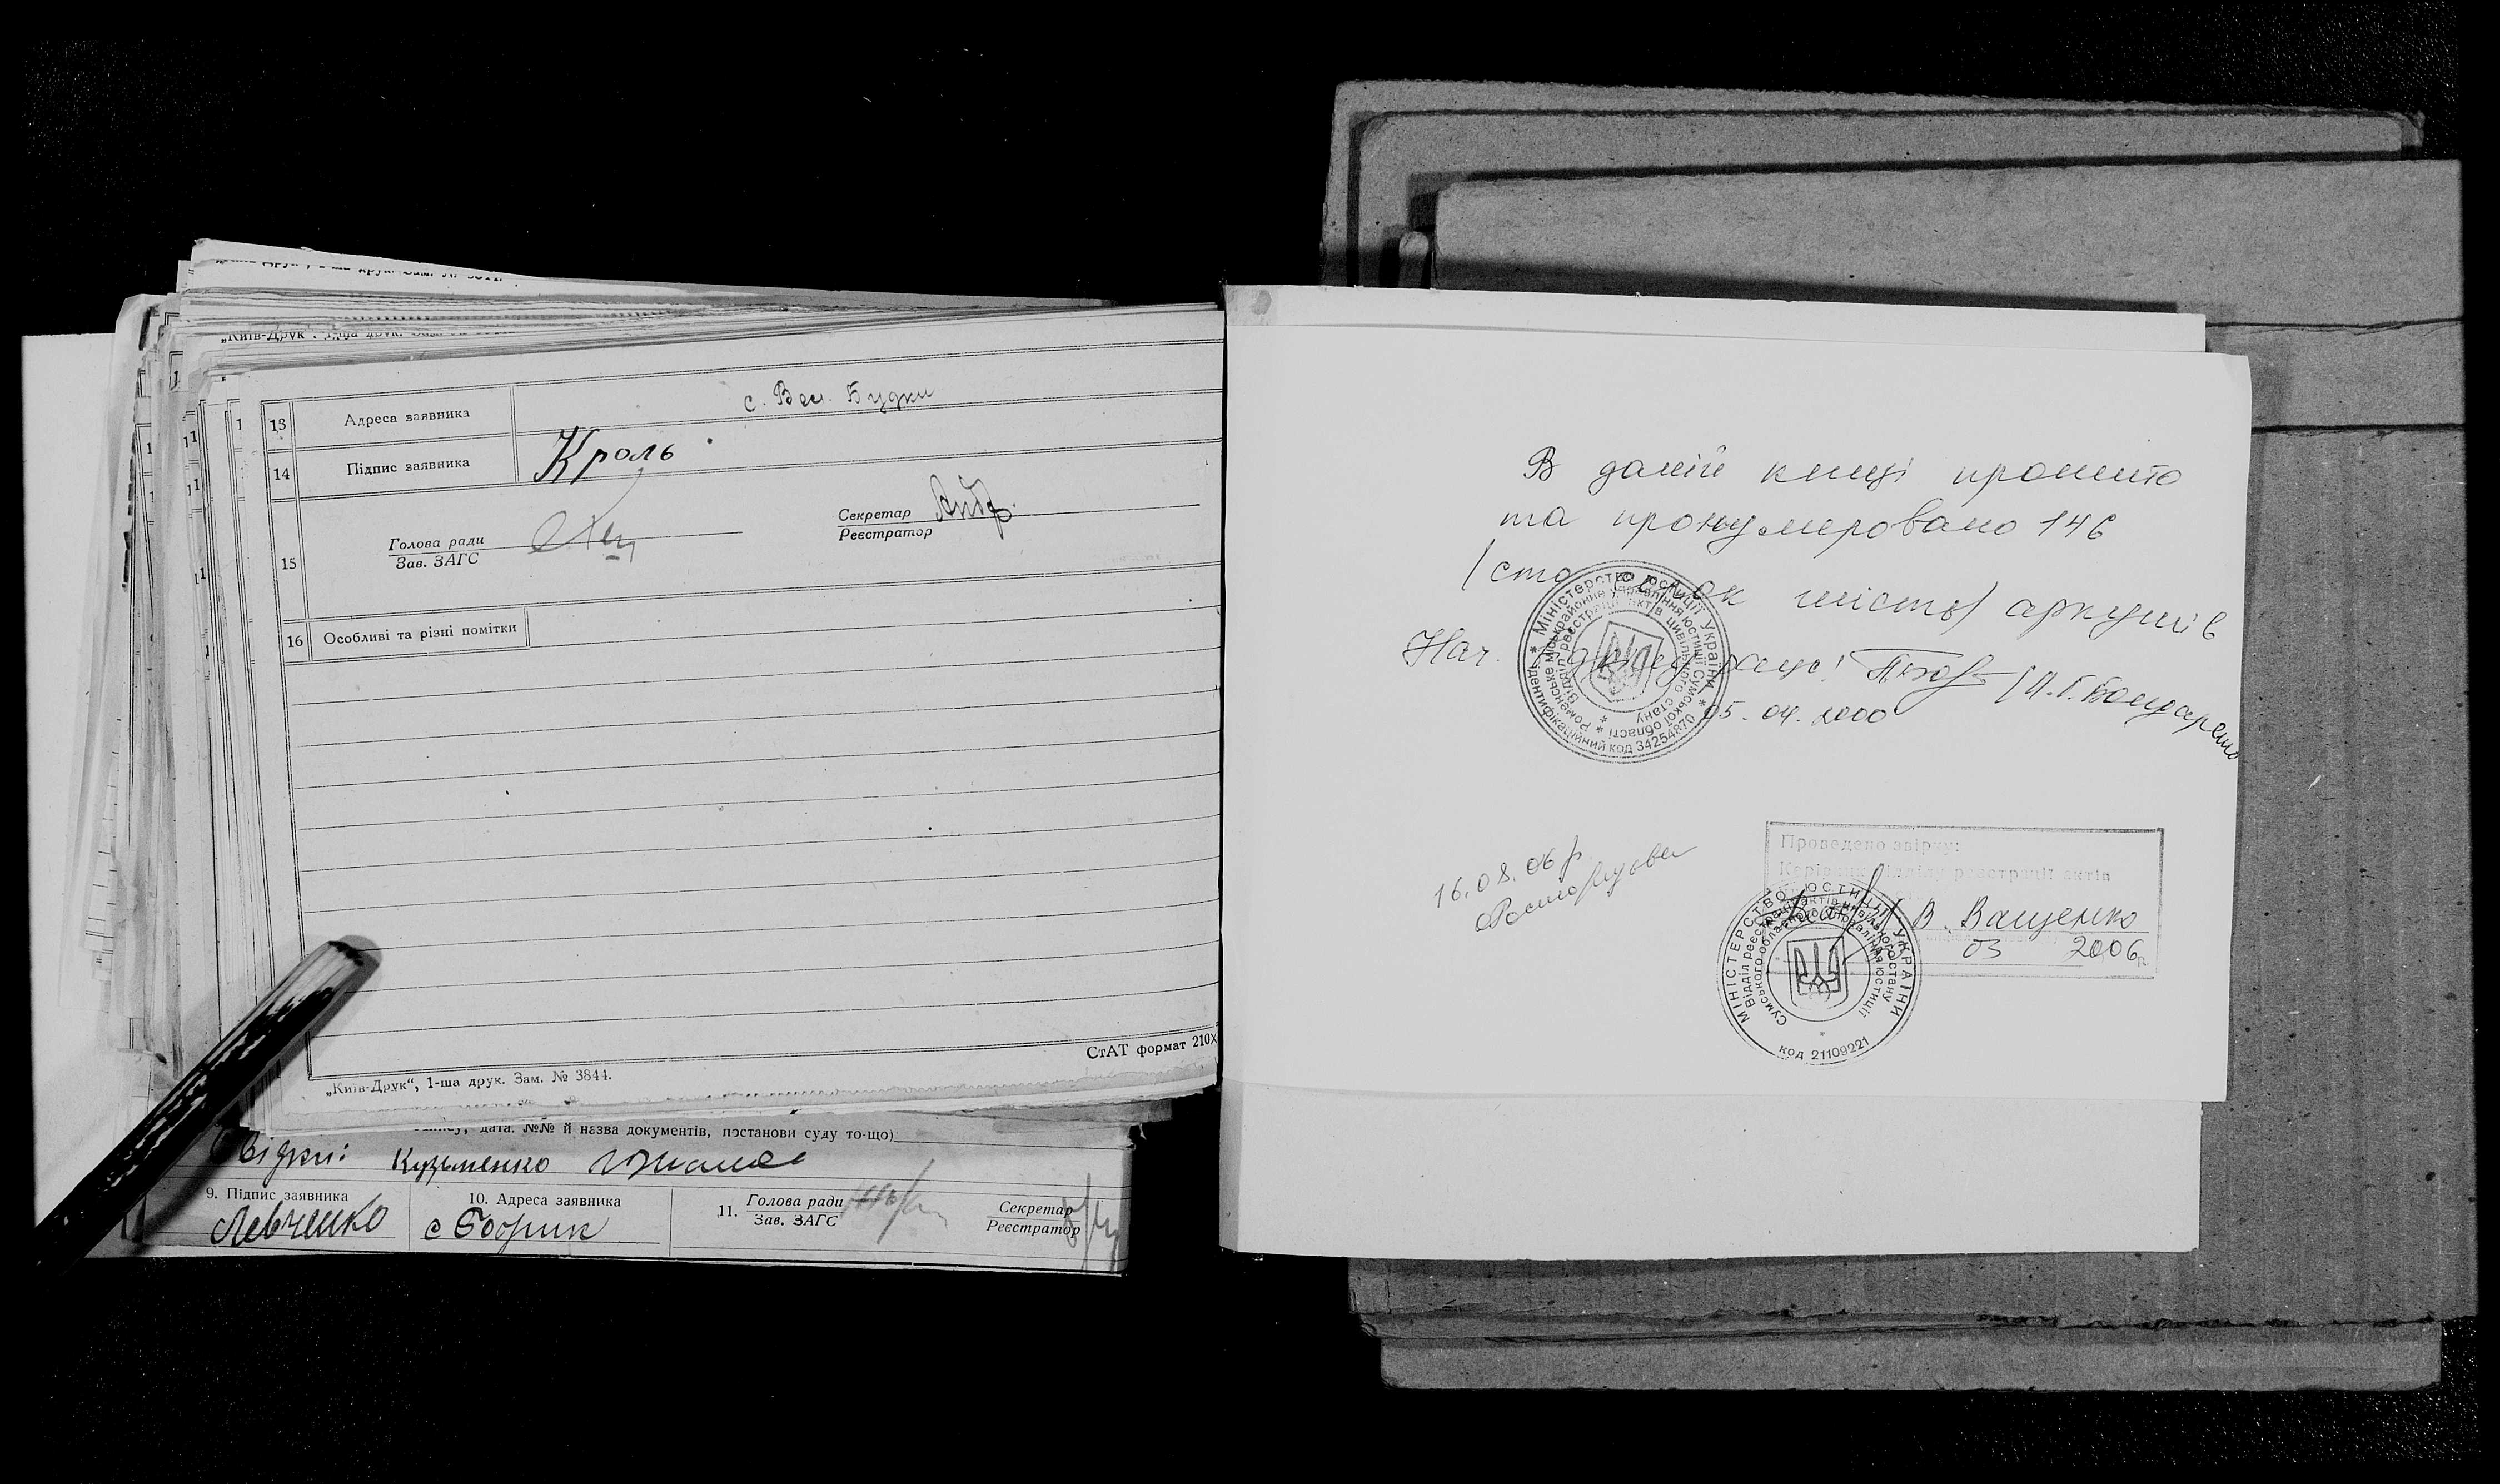 „Київ-Друк", 1-ша друк.
13 Адреса заявника с. Вел. Будки
14 Підпис заявника Кроль
15 Голова ради
Зав. ЗАГС
Секретар
Реєстратор
16 Особливі та різні помітки
СтАТ формат 210х
„Київ-Друк“, 1-ша друк. Зам. № 3844.
дата. №№ й назва документів, постанови суду то-що)
Свідки: Кузьменко
9. Підпис заявника
Левченко
10. Адреса заявника
с
11. Голова ради
Зав. ЗАГС
Секретар
Реєстратор
В даній книзі прошито
та пронумеровано 146
/сто сорок шість/ аркушів
Нач. /П.Г. Бондаренко
05.04.2000
Міністерство юстиції України
Роменське міськрайонне управління юстиції Сумської області
Відділ реєстрації актів цивільного стану
Ідентифікаційний код 34254870
16.08.06 р
Проведено звірку:
Керівник відділу реєстрації актів
В. Ващенко
03 2006р.
МІНІСТЕРСТВО ЮСТИЦІЇ УКРАЇНИ
Відділ реєстрації актів цивільного стану
Сумського обласного управління юстиції
код 21109221